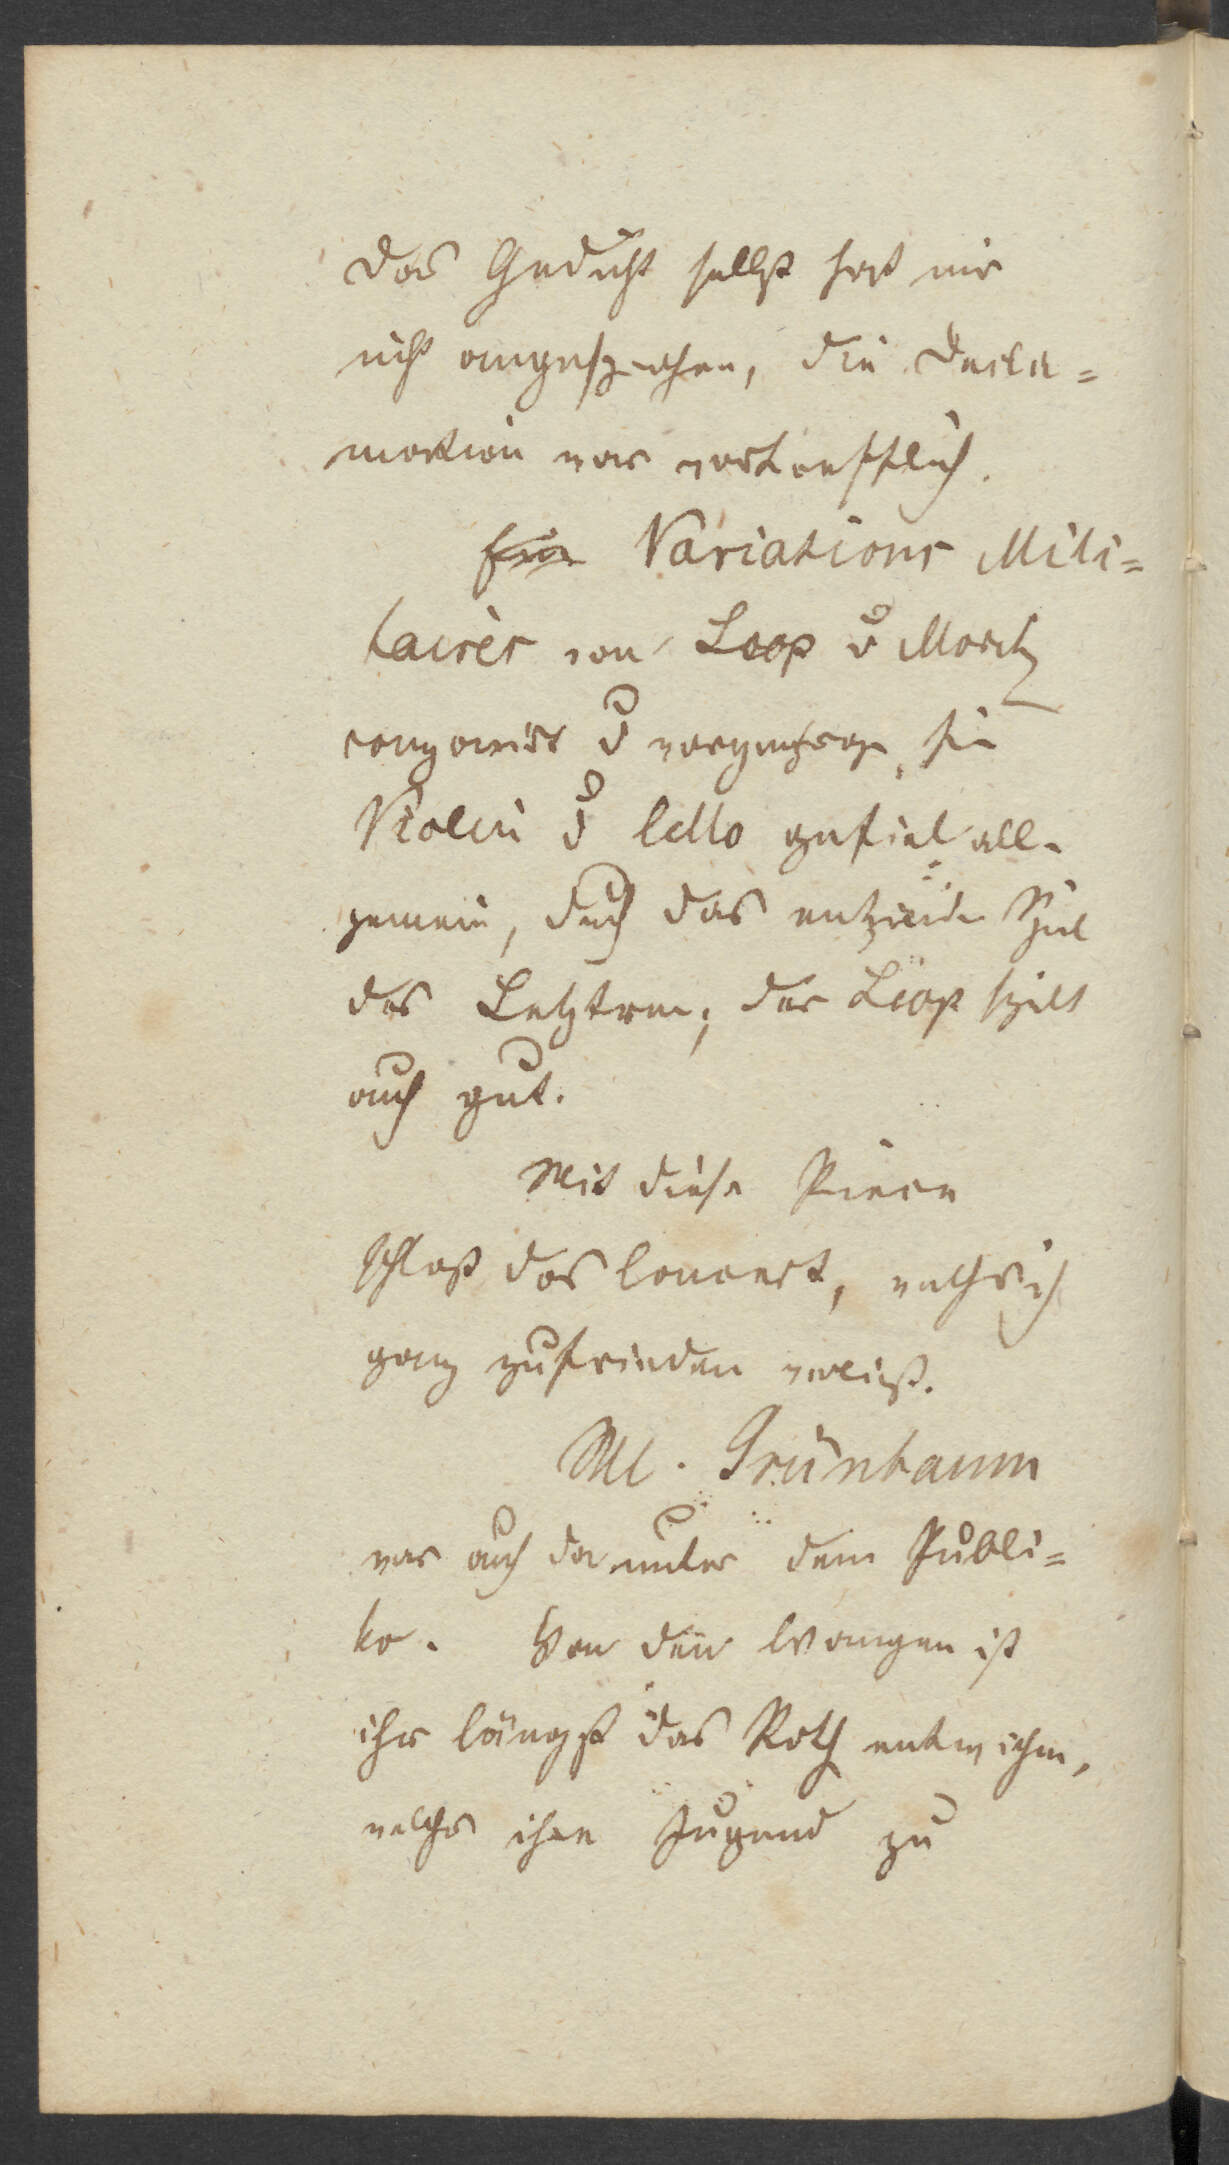 Das Gedicht selbst hat mir
nicht angesprochen, die Decla=
mation war vortrefflich.
Variations Mili=
taires von u Moritz
componirt u vorgetragen für
Violin u Cello gefiel all-
gemein, durch das entzückende Spiel
des Letztren; der spielt
auch gut.
Mit diese Piece
schloß das Concert, welches ich
ganz zufrieden verließ.
Md. Grünbaum
war auch da unter dem Publi=
ko. Von den Wangen ist
ihr längst das Roth entwichen,
welches ihre Jugend zu